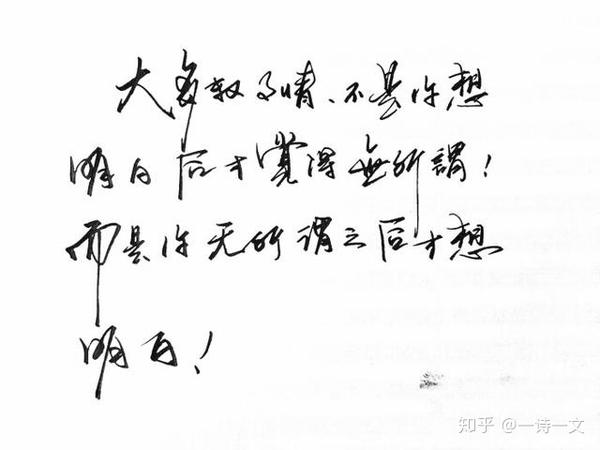 大多数事情、不是你想
明白后才覺得無所謂！
而是你无所谓之后才想
明白！
知乎 @一诗一文